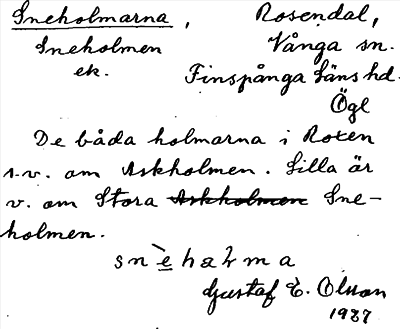 Sneholmarna, Rosendal,
Sneholmen Vånga sn.
ek. Finspånga läns hd.
Ögl
De båda holmarna i Roxen
s.v. om Askholmen. Lilla är
v. om Stora Askholmen Sne-
holmen.
Gustaf E. Olsson
1937